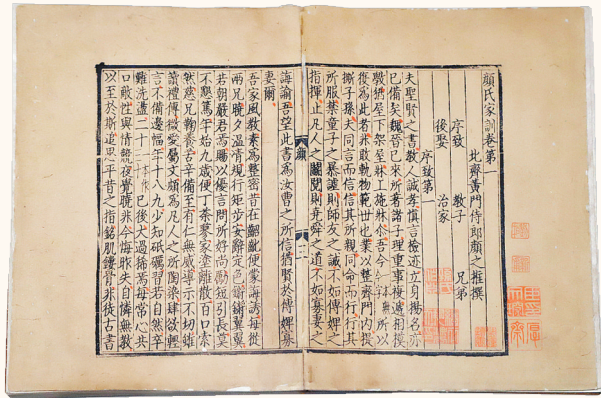 顔氏家訓卷第一
北齊黃門侍郎顔之推撰
序致 教子 兄弟
後娶 治家
序致第一
夫聖賢之書教人誠孝慎言檢迹立身揚名亦
已備矣魏晉已來所著諸子理重事複遞相摸
斆猶屋下架屋牀上施牀爾吾今所以
復爲此者非敢軌物範世也業以整齊門内提
撕子孫夫同言而信信其所親同命而行行其
所服禁童子之暴謔則師友之誡不如傅婢之
指揮止凡人之鬭䦧則堯舜之道不如寡妻之
顔一
誨諭吾望此書爲汝曹之所信猶賢於傅婢寡
妻爾
吾家風教素爲整密昔在齠齔便蒙誨誘每從
兩兄曉夕温凊規行矩步安辭定色鏘鏘翼翼
若朝嚴君焉賜以優言問所好尚勵短引長莫
不懇篤年始九歲便丁荼蓼家塗離散百口索
然慈兄鞠養苦辛備至有仁無威導示不切雖
讀禮傳微愛屬文頗爲凡人之所陶染肆欲輕
言不備邊幅年十八九少知砥礪習若自然卒
難洗盪二十已後大過稀焉每常心共
口敵性與情競夜覺曉非今悔昨失自憐無教
以至於斯追思平昔之指銘肌鏤骨非徒古書